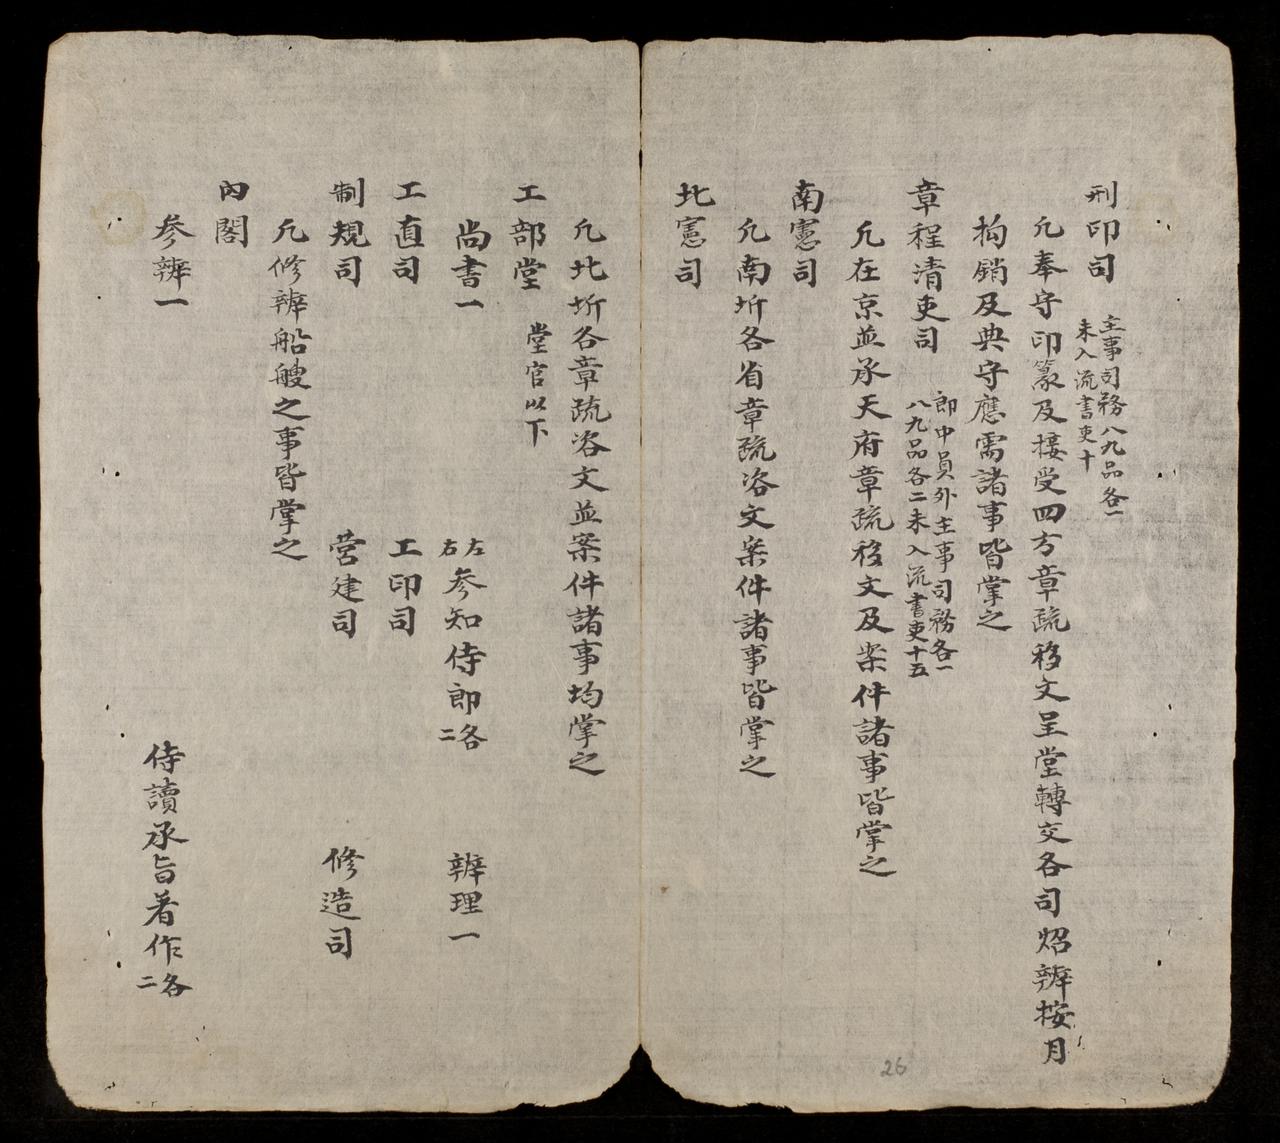 刑印司 主事司務八九品各一
未入流書吏十
凢奉守印篆及接受四方章疏移文呈堂轉交各司炤辨按月
拘銷及典守應需諸事皆掌之
章程清吏司 郎中員外主事司務各一
八九品各二未入流書吏十五
凢在京並承天府章疏移文及案件諸事皆掌之
南憲司
凢南圻各省章疏咨文案件諸事皆掌之
北憲司
凢北圻各章疏咨文並案件諸事均掌之
工部堂 堂官以下
尚書一 左右參知侍郎各二 辨理一
工直司 工印司
制規司 營建司 修造司
凢修辨船艘之事皆掌之
內閣
參辨一 侍讀承旨著作各二
26